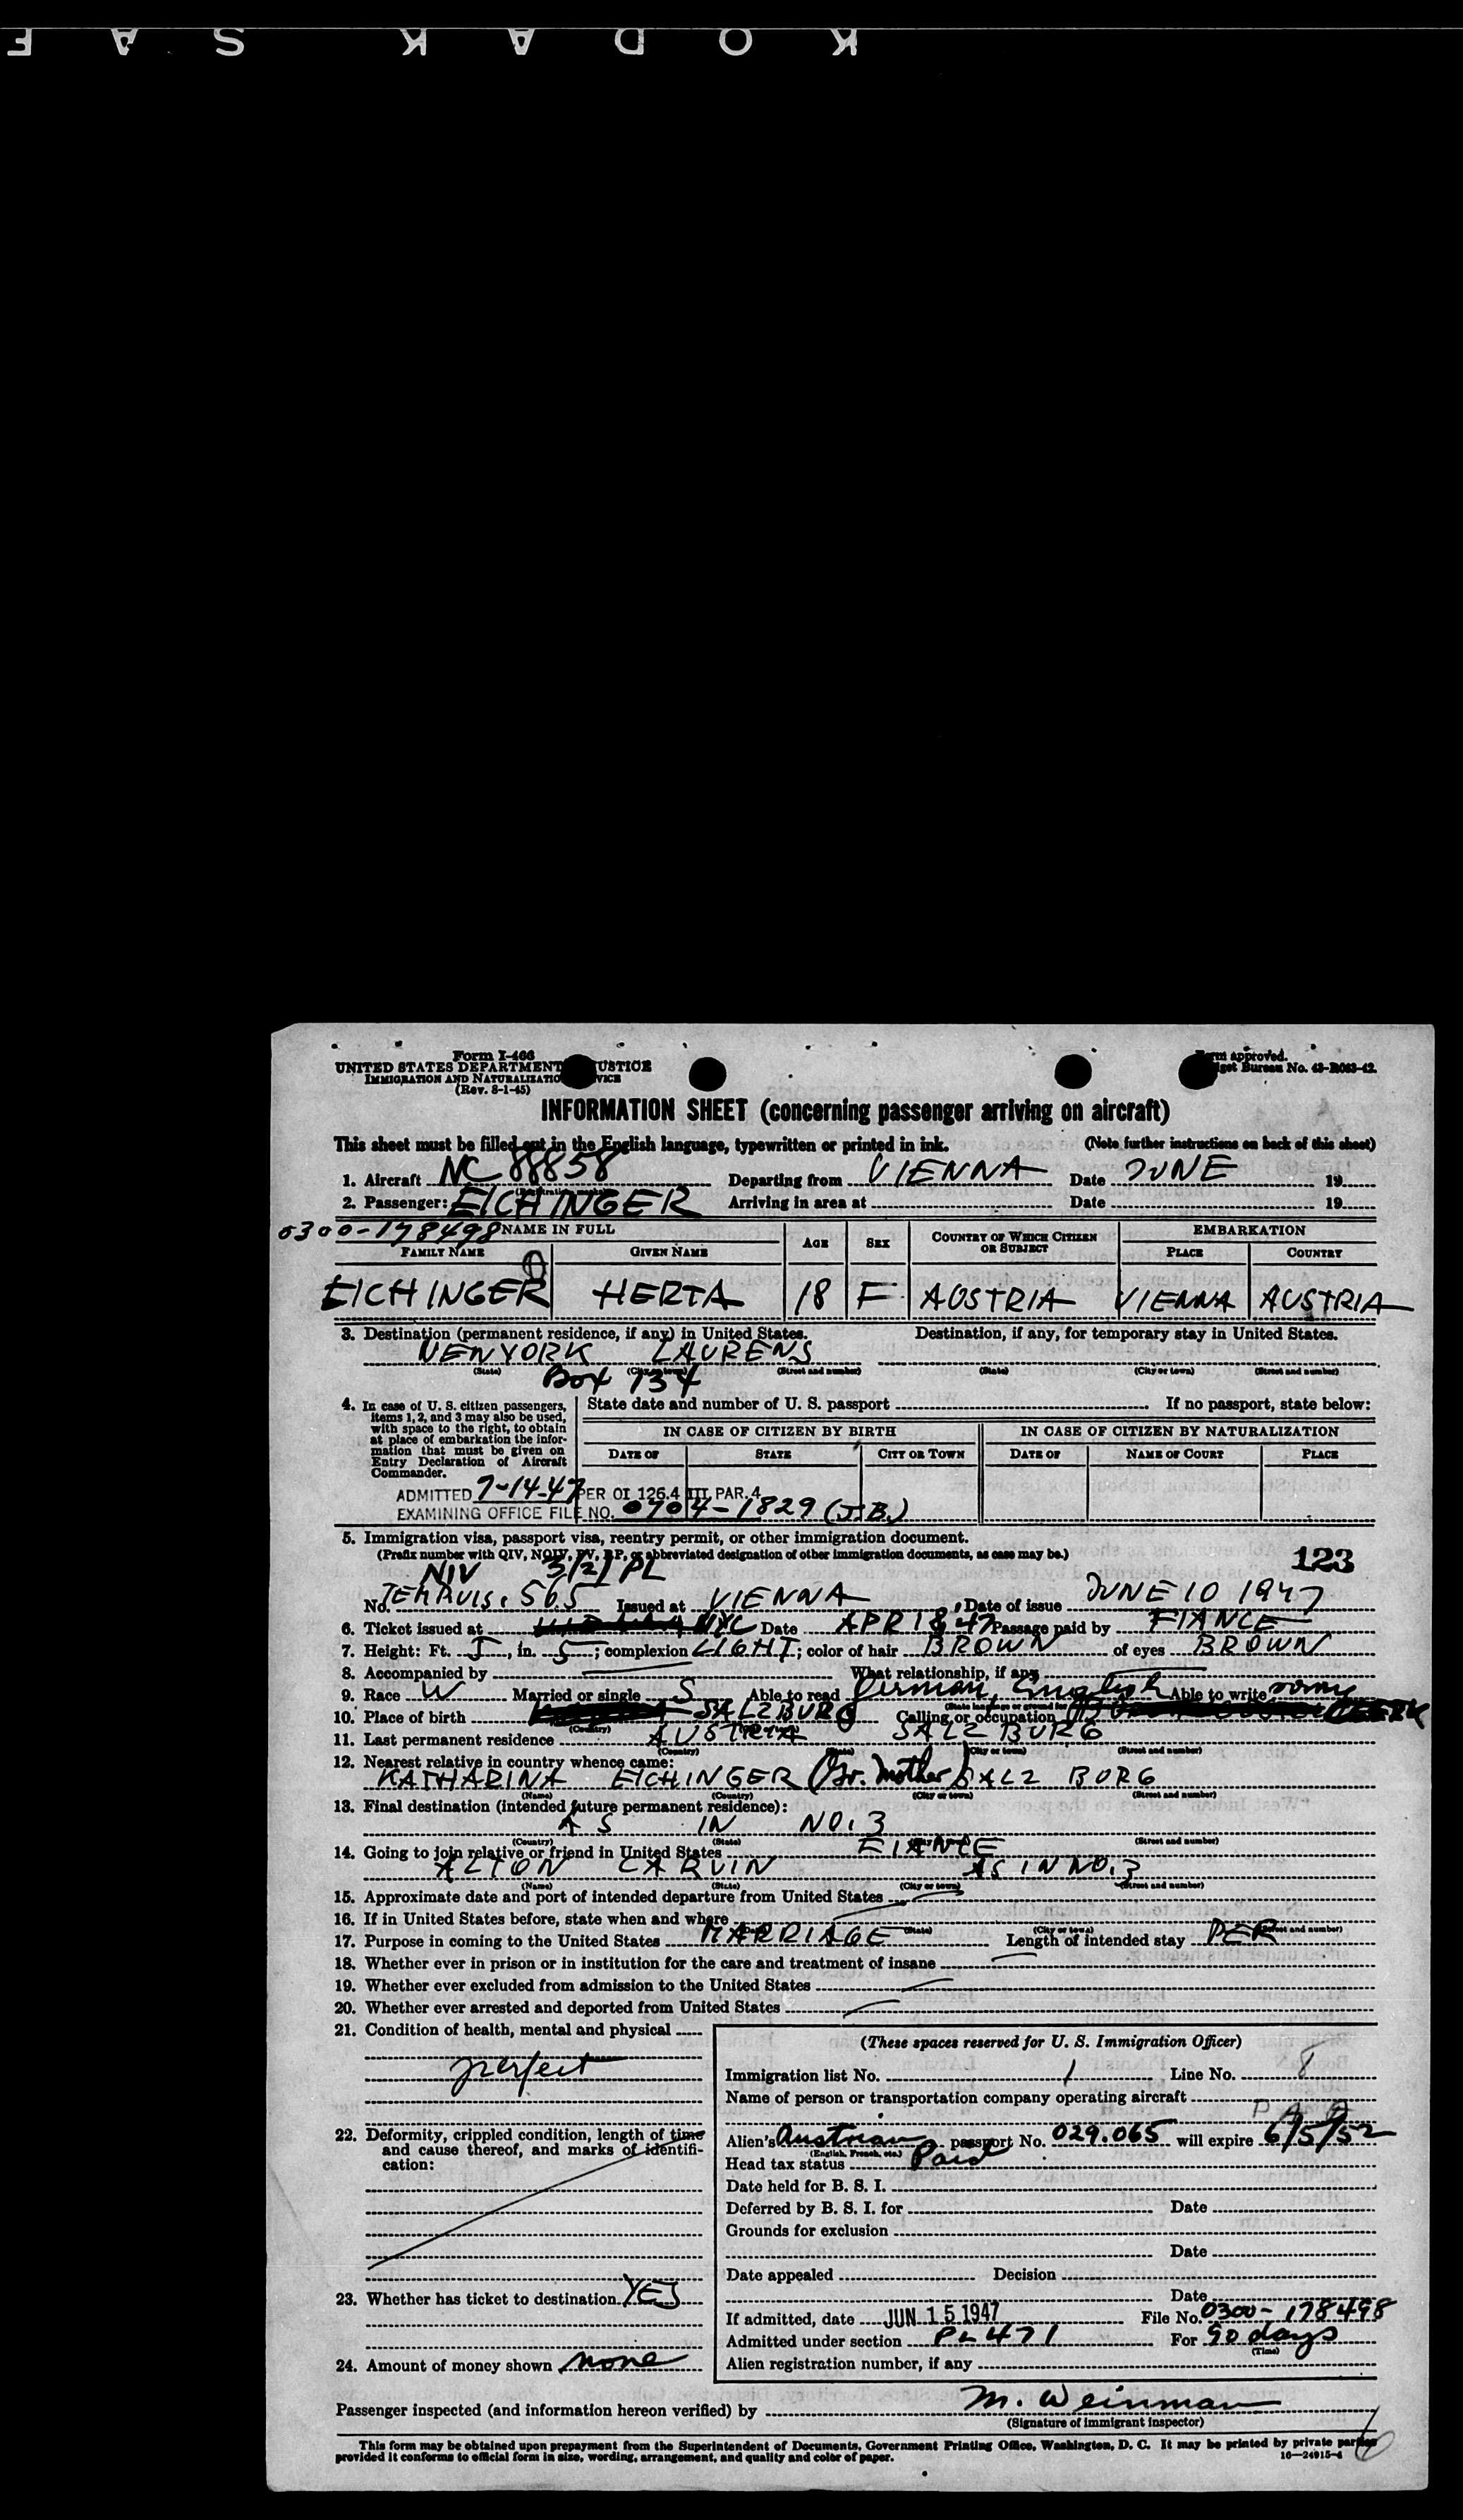 KODAK SAF
Form I-466
UNITED STATES DEPARTMENT JUSTICE
IMMIGRATION AND NATURALIZATION SERVICE
(Rev. 8-1-45)
Form approved.
Budget Bureau No. 43-R083-42.
INFORMATION SHEET (concerning passenger arriving on aircraft)
This sheet must be filled out in the English language, typewritten or printed in ink. (Note further instructions on back of this sheet)
1. Aircraft NC 88858 Departing from VIENNA Date JUNE 19
2. Passenger: EICHINGER Arriving in area at Date 19
0300-178498 NAME IN FULL AGE SEX COUNTRY OF WHICH CITIZEN OR SUBJECT EMBARKATION
FAMILY NAME GIVEN NAME PLACE COUNTRY
EICHINGER HERTA 18 F AUSTRIA VIENNA AUSTRIA
3. Destination (permanent residence, if any) in United States. Destination, if any, for temporary stay in United States.
NEWYORK LAURENS
(State) (City or town) (Street and number) (State) (City or town) (Street and number)
Box 134
4. In case of U. S. citizen passengers, items 1, 2, and 3 may also be used, with space to the right, to obtain at place of embarkation the information that must be given on Entry Declaration of Aircraft Commander.
State date and number of U. S. passport If no passport, state below:
IN CASE OF CITIZEN BY BIRTH IN CASE OF CITIZEN BY NATURALIZATION
DATE OF STATE CITY OR TOWN DATE OF NAME OF COURT PLACE
ADMITTED 7-14-47 PER OI 126.4 III, PAR. 4
EXAMINING OFFICE FILE NO. 0704-1829 (J.B.)
5. Immigration visa, passport visa, reentry permit, or other immigration document.
(Prefix number with QIV, NQIV, PV, RP, or abbreviated designation of other immigration documents, as case may be.)
123
NIV 3/2/ PL
No. 565 Issued at VIENNA , Date of issue JUNE 10 1947
6. Ticket issued at NYC Date APR 18 47 Passage paid by FIANCE
7. Height: Ft. 5, in. 5; complexion LIGHT; color of hair BROWN of eyes BROWN
8. Accompanied by What relationship, if any
9. Race W Married or single S Able to read German, English Able to write
(State language or ground for
10. Place of birth SALZBURG Calling or occupation CLERK
(Country)
11. Last permanent residence AUSTRIA SALZBURG
(Country) (State) (City or town) (Street and number)
12. Nearest relative in country whence came:
KATHARINA EICHINGER (Gr. Mother) SALZBURG
(Name) (Country) (City or town) (Street and number)
13. Final destination (intended future permanent residence):
AS IN NO. 3
(Country) (State) (Street and number)
14. Going to join relative or friend in United States FIANCE
ALTON CARVIN AS IN NO. 3
(Name) (State) (City or town) (Street and number)
15. Approximate date and port of intended departure from United States
16. If in United States before, state when and where
(State) (City or town) (Street and number)
17. Purpose in coming to the United States MARRIAGE Length of intended stay PER
18. Whether ever in prison or in institution for the care and treatment of insane
19. Whether ever excluded from admission to the United States
20. Whether ever arrested and deported from United States
21. Condition of health, mental and physical
perfect
22. Deformity, crippled condition, length of time and cause thereof, and marks of identification:
23. Whether has ticket to destination YES
24. Amount of money shown none
(These spaces reserved for U. S. Immigration Officer)
Immigration list No. 1 Line No. 8
Name of person or transportation company operating aircraft
P A A
Alien's Austrian passport No. 029.065 will expire 6/5/52
(English, French, etc.)
Head tax status Paid
Date held for B. S. I.
Deferred by B. S. I. for Date
Grounds for exclusion
Date
Date appealed Decision
Date
If admitted, date JUN 15 1947 File No. 0300-178498
Admitted under section PL 471 For 90 days
(Time)
Alien registration number, if any
Passenger inspected (and information hereon verified) by M. Weinman
(Signature of immigrant inspector)
This form may be obtained upon prepayment from the Superintendent of Documents, Government Printing Office, Washington, D. C. It may be printed by private parties
provided it conforms to official form in size, wording, arrangement, and quality and color of paper. 16—24915-4